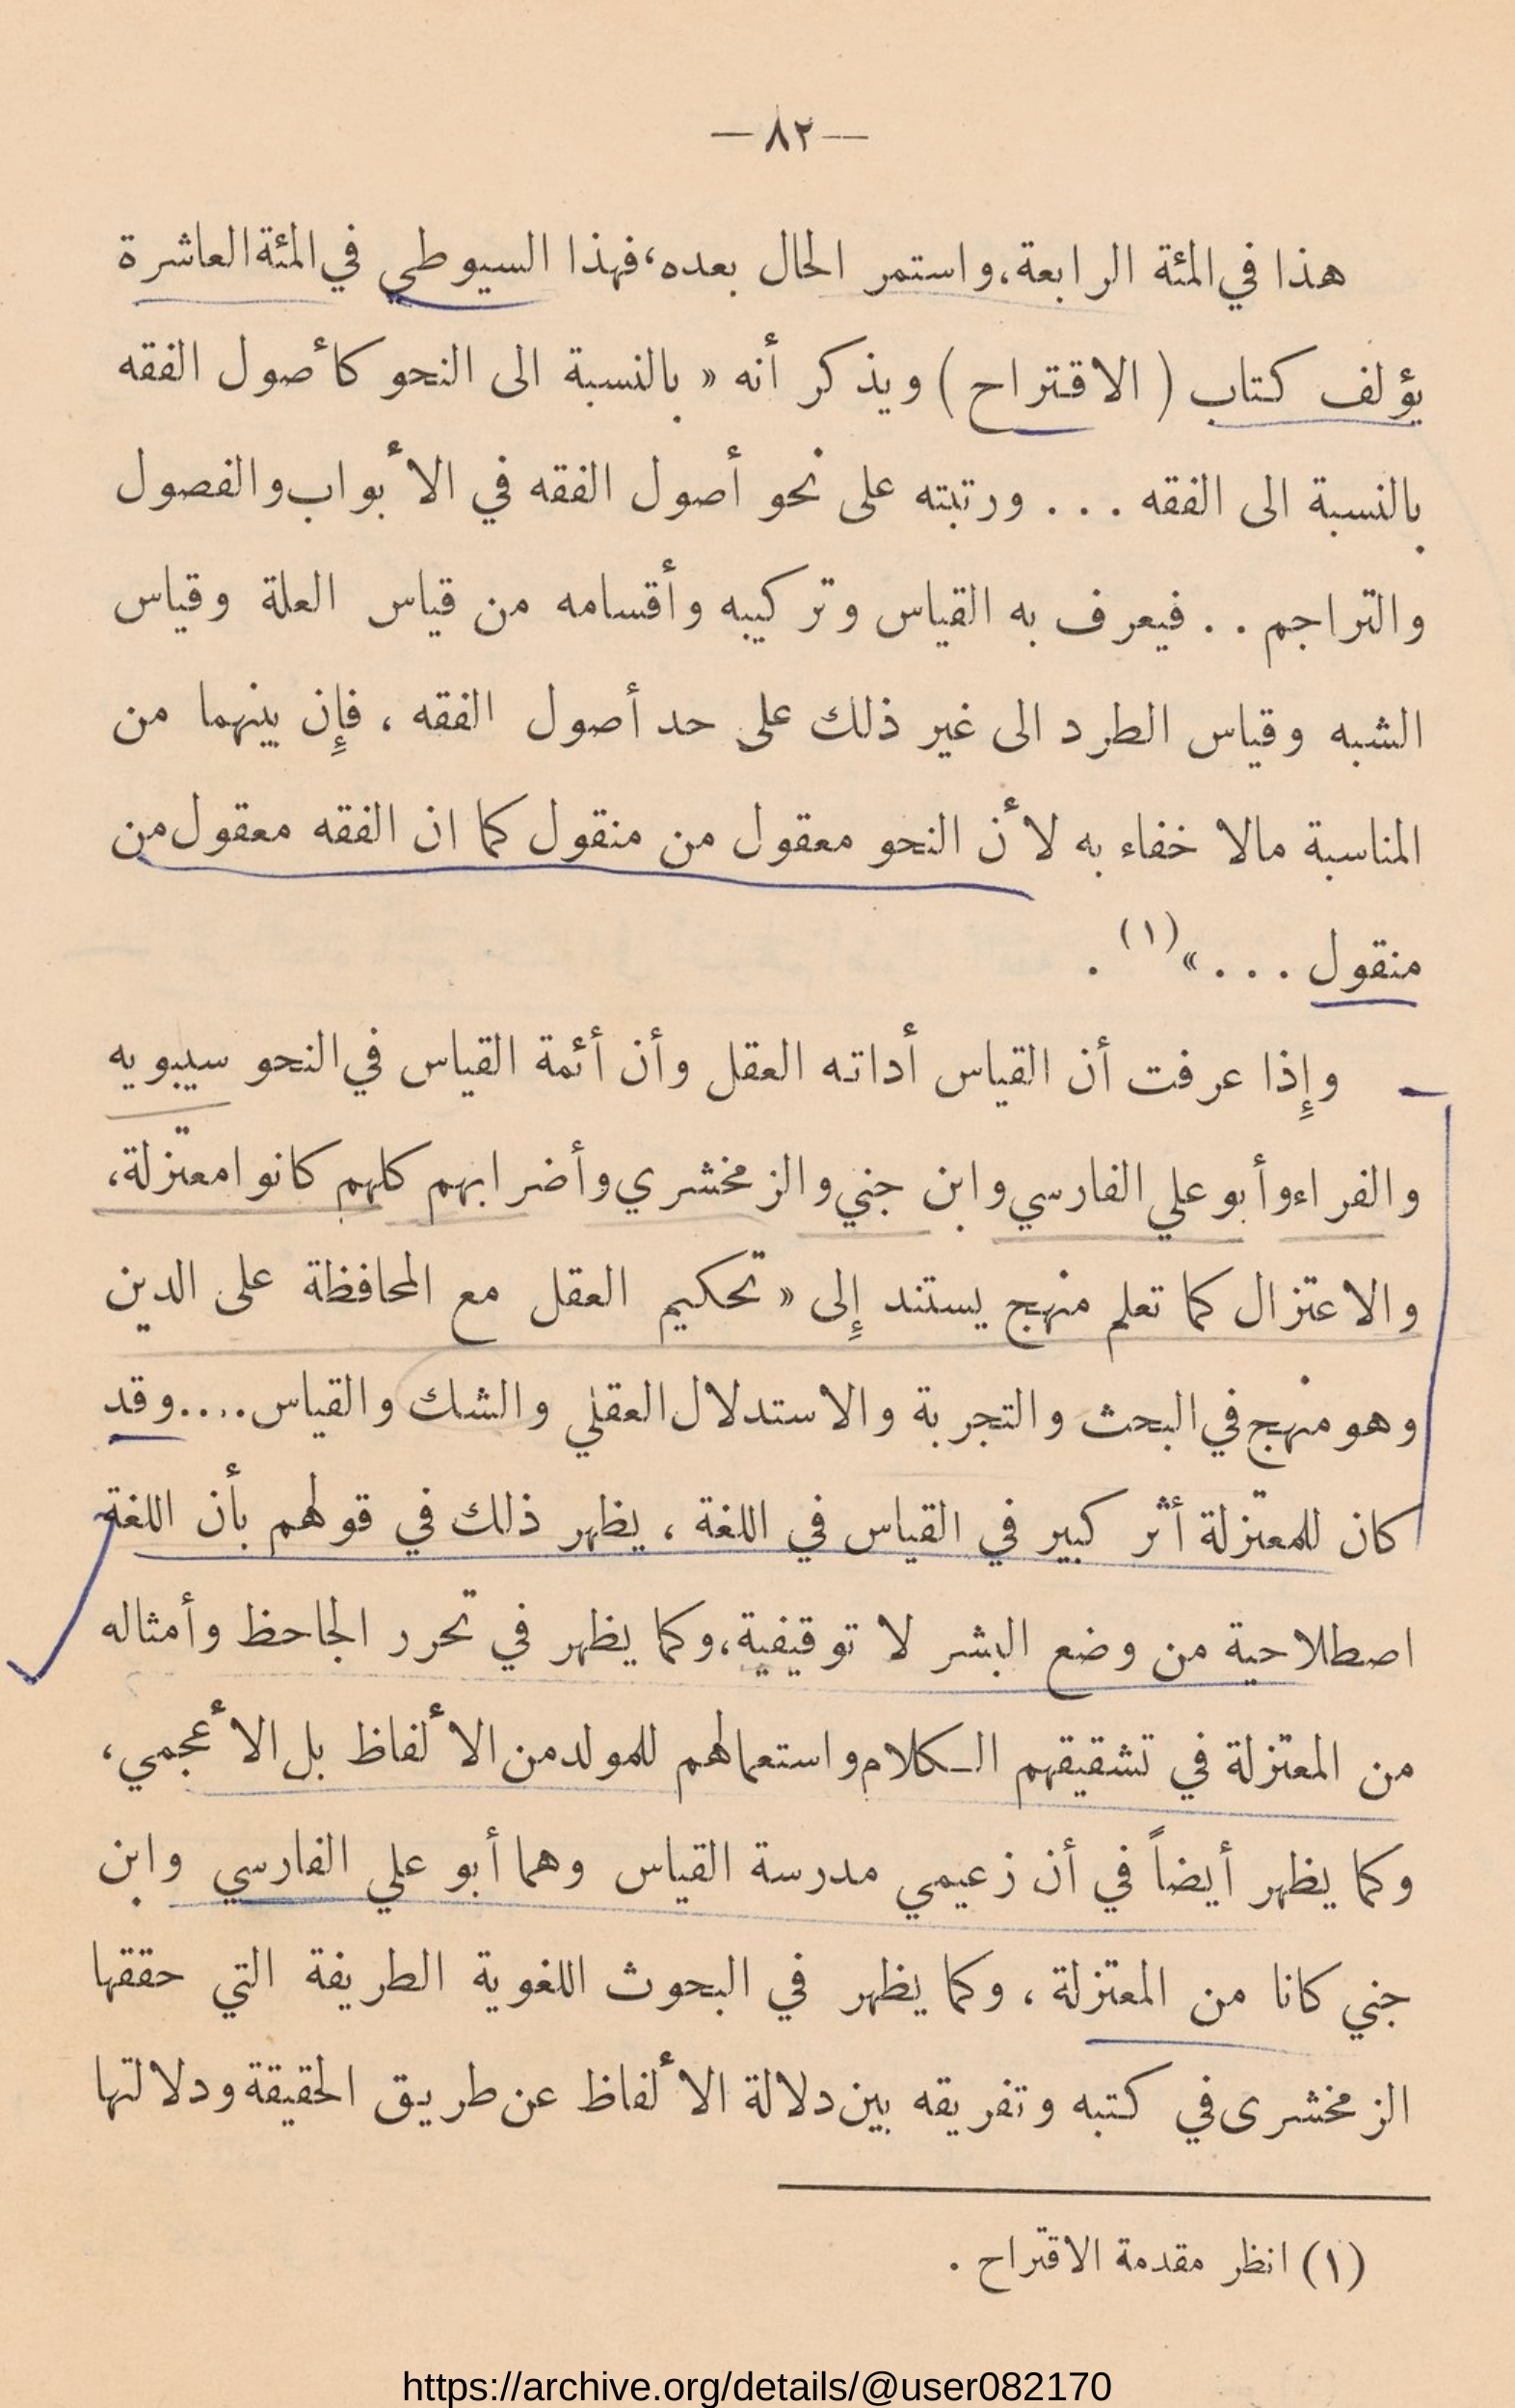 —٨٢—
هذا في المئة الرابعة، واستمر الحال بعده، فهذا السيوطي في المئة العاشرة
يؤلف كتاب ( الاقتراح ) ويذكر أنه « بالنسبة الى النحو كأصول الفقه
بالنسبة الى الفقه . . . ورتبته على نحو أصول الفقه في الأبواب والفصول
والتراجم . . فيعرف به القياس وتركيبه وأقسامه من قياس العلة وقياس
الشبه وقياس الطرد الى غير ذلك على حد أصول الفقه ، فإن بينهما من
المناسبة مالا خفاء به لأن النحو معقول من منقول كما ان الفقه معقول من
منقول . . . »(١) .
وإذا عرفت أن القياس أداته العقل وأن أئمة القياس في النحو سيبويه
والفراء وأبو علي الفارسي وابن جني والزمخشري وأضرابهم كلهم كانوا معتزلة،
والاعتزال كما تعلم منهج يستند إلى « تحكيم العقل مع المحافظة على الدين
وهو منهج في البحث والتجربة والاستدلال العقلي والشك والقياس.... وقد
كان للمعتزلة أثر كبير في القياس في اللغة ، يظهر ذلك في قولهم بأن اللغة
اصطلاحية من وضع البشر لا توقيفية، وكما يظهر في تحرر الجاحظ وأمثاله
من المعتزلة في تشقيقهم الكلام واستعمالهم للمولد من الألفاظ بل الأعجمي،
وكما يظهر أيضاً في أن زعيمي مدرسة القياس وهما أبو علي الفارسي وابن
جني كانا من المعتزلة ، وكما يظهر في البحوث اللغوية الطريفة التي حققها
الزمخشرى في كتبه وتفريقه بين دلالة الألفاظ عن طريق الحقيقة ودلالتها
(١) انظر مقدمة الاقتراح .
https://archive.org/details/@user082170